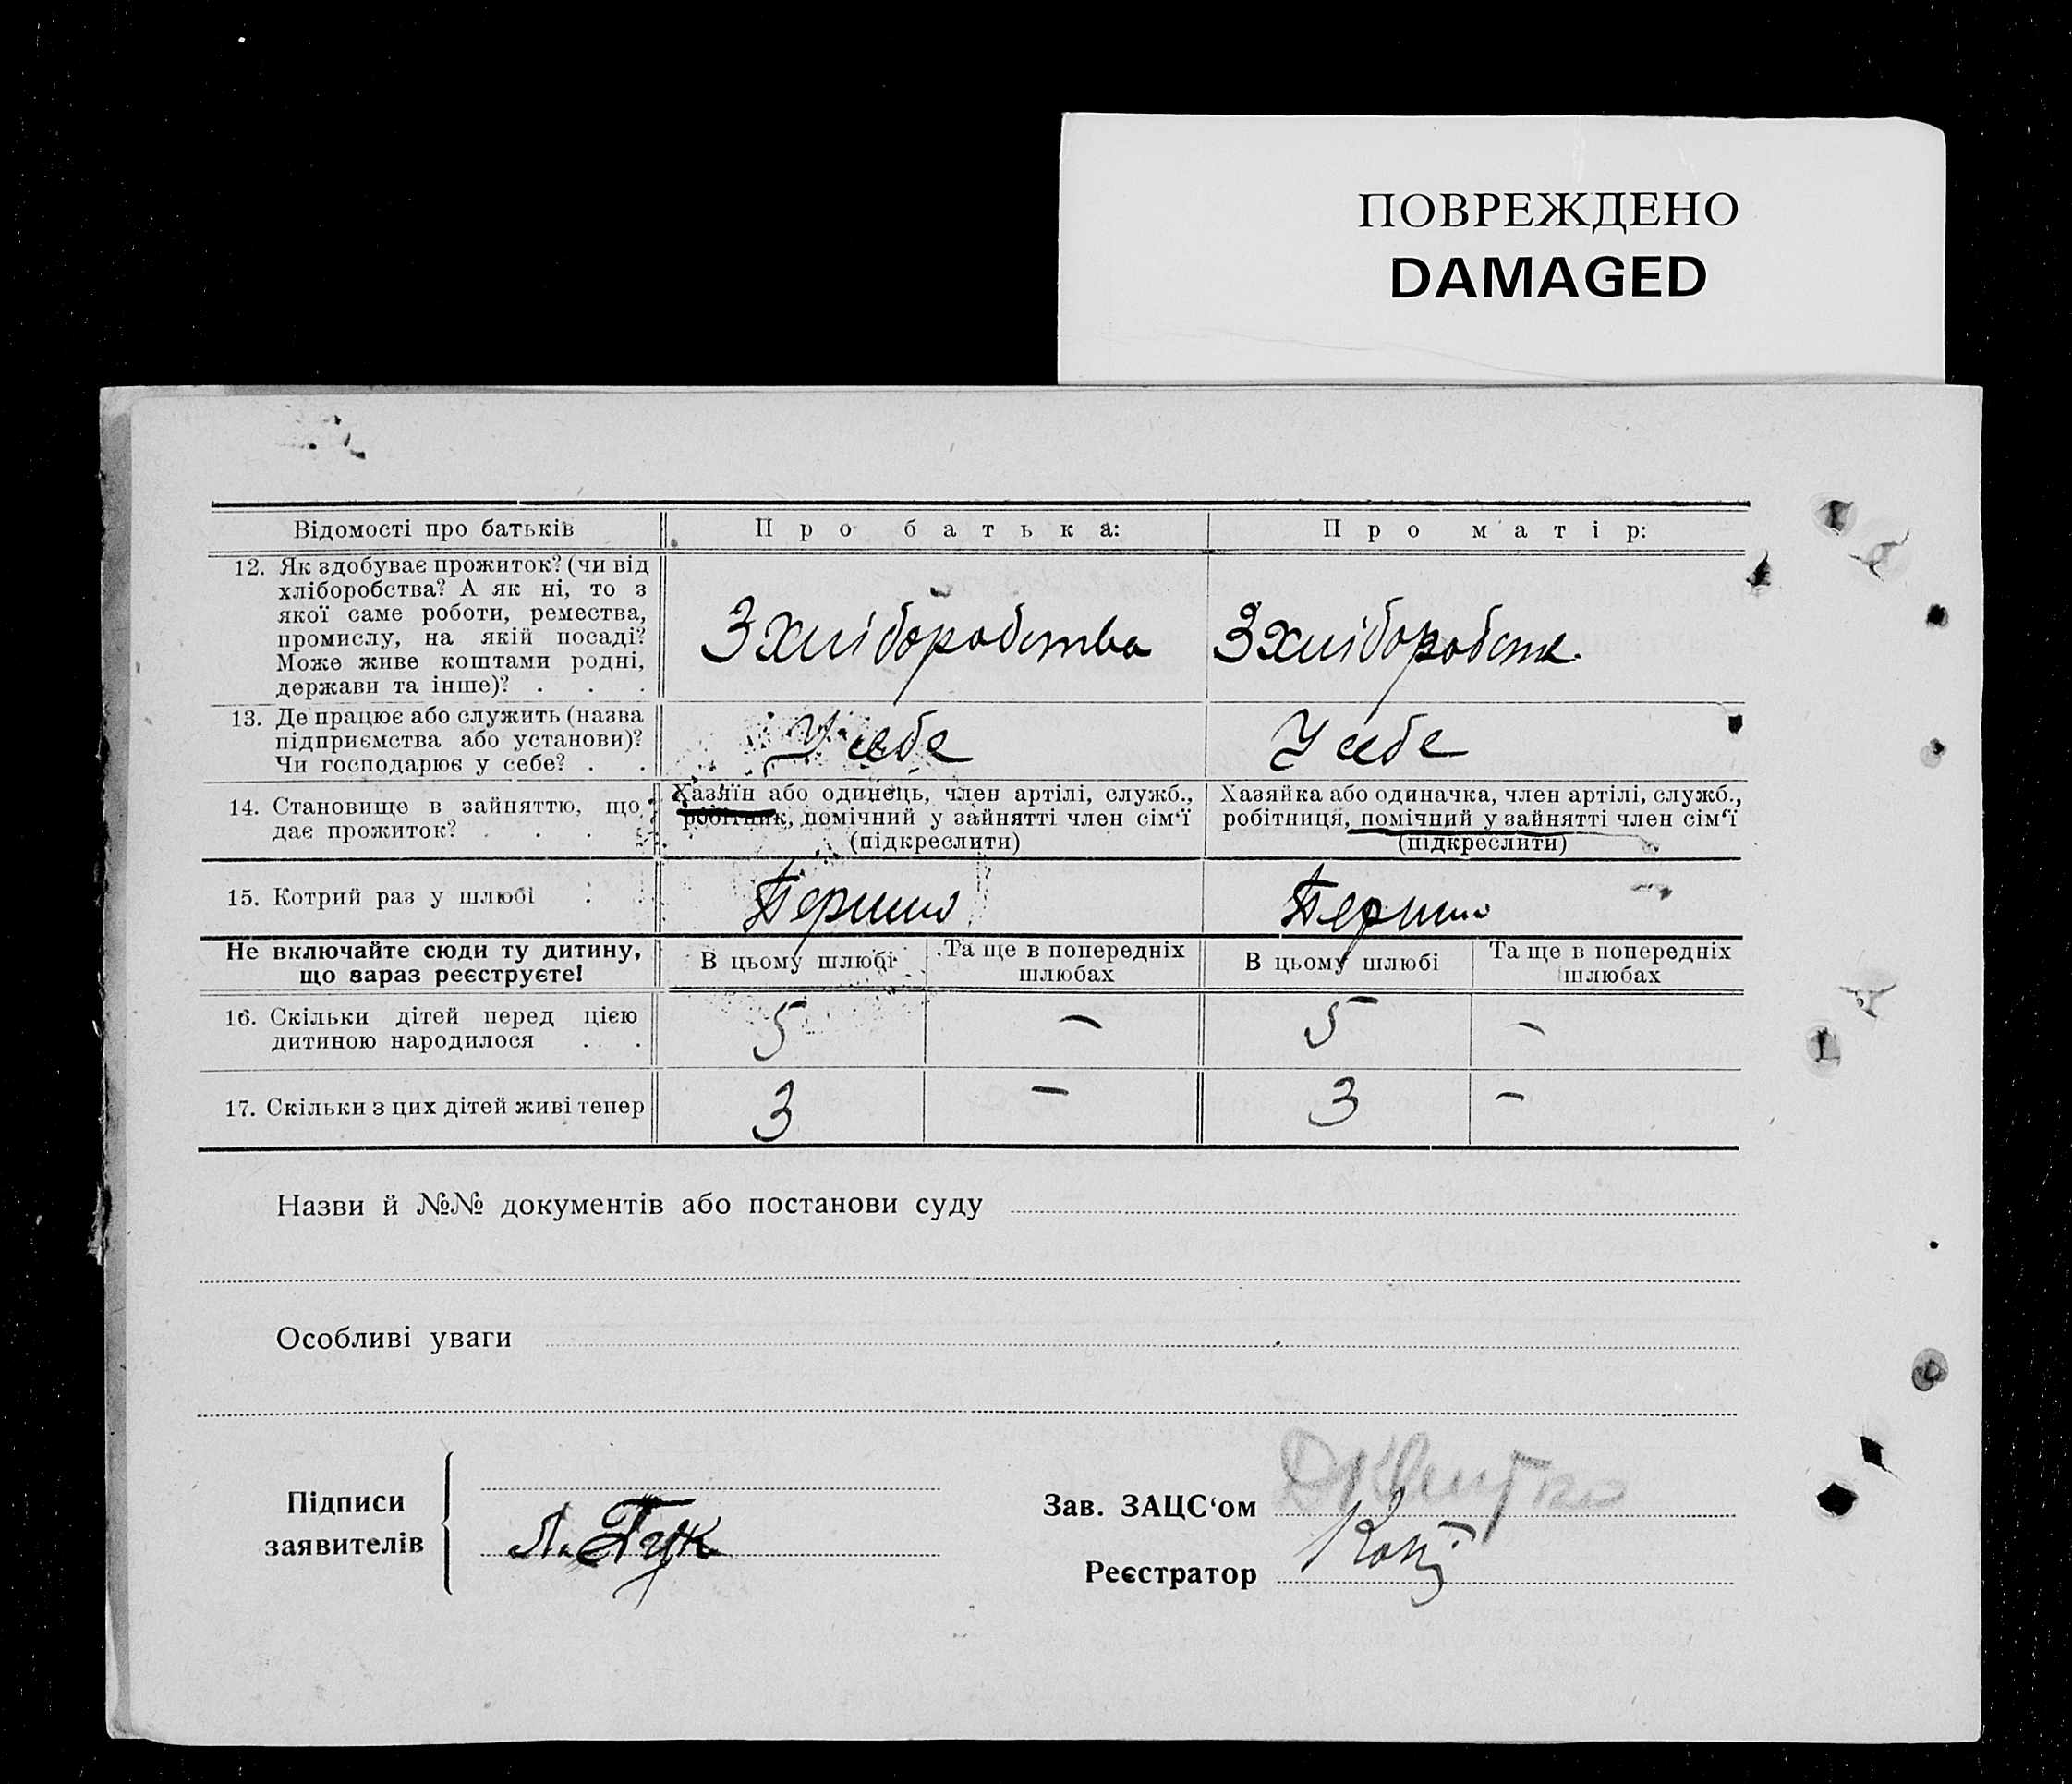 ПОВРЕЖДЕНО
DAMAGED
Відомості про батьків
Про батька:
Про матір:
12. Як здобуває прожиток? (чи від
хліборобства? А як ні, то з
якої саме роботи, ремества,
промислу, на якій посаді?
Може живе коштами родні,
держави та інше)? . . .
З хліборобства
З хліборобств.
13. Де працює або служить (назва
підприємства або установи)?
Чи господарює у себе? . .
У себе
У себе
14. Становище в зайняттю, що
дає прожиток? . . .
Хазяїн або одинець, член артілі, служб.,
робітник, помічний у зайнятті член сім'ї
(підкреслити)
Хазяйка або одиначка, член артілі, служб.,
робітниця, помічний у зайнятті член сім'ї
(підкреслити)
15. Котрий раз у шлюбі . .
Перший
Перший
Не включайте сюди ту дитину,
що вараз реєструєте!
В цьому шлюбі
Та ще в попередніх
шлюбах
В цьому шлюбі
Та ще в попередніх
шлюбах
16. Скільки дітей перед цією
дитиною народилося . .
5
–
5
–
17. Скільки з цих дітей живі тепер
3
–
3
–
Назви й №№ документів або постанови суду
Особливі уваги
Підписи
заявителів
Л. Гук
Зав. ЗАЦС'ом
Реєстратор